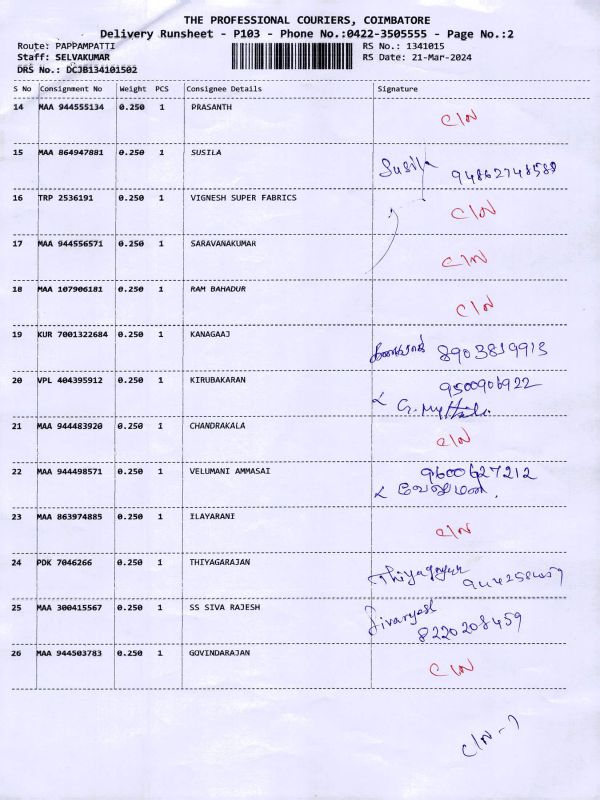 THE PROFESSIONAL COURIERS, COIMBATORE
Delivery Runsheet - P103 - Phone No.:0422-3505555 - Page No.:2
Route: PAPPAMPATTI RS No.: 1341015
Staff: SELVAKUMAR RS Date: 21-Mar-2024
DRS No.: DCJB134101502
S No Consignment No Weight PCS Consignee Details Signature
14 MAA 944555134 0.250 1 PRASANTH C/N
15 MAA 864947881 0.250 1 SUSILA Susila 94862748589
16 TRP 2536191 0.250 1 VIGNESH SUPER FABRICS C/N
17 MAA 944556571 0.250 1 SARAVANAKUMAR C/N
18 MAA 107906181 0.250 1 RAM BAHADUR C/N
19 KUR 7001322684 0.250 1 KANAGAAJ 8903819913
20 VPL 404395912 0.250 1 KIRUBAKARAN 9500906922
21 MAA 944483920 0.250 1 CHANDRAKALA C/N
22 MAA 944498571 0.250 1 VELUMANI AMMASAI 9600627212
வேலுமணி
23 MAA 863974885 0.250 1 ILAYARANI C/N
24 PDK 7046266 0.250 1 THIYAGARAJAN
25 MAA 300415567 0.250 1 SS SIVA RAJESH
8220208459
26 MAA 944503783 0.250 1 GOVINDARAJAN C/N
C/N - 7